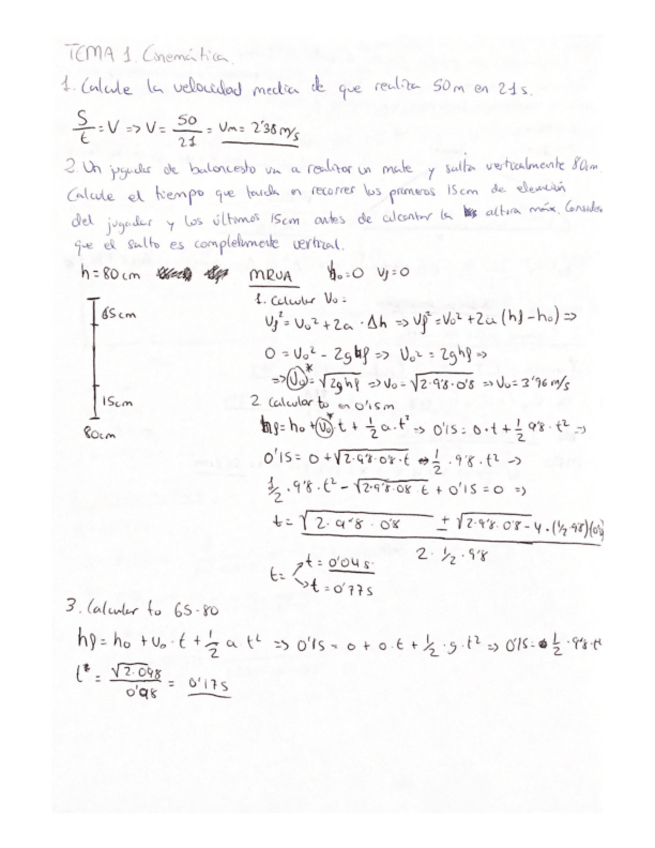 TEMA 1. Cinemática.
1. Calcule la velocidad media de que realiza 50m en 21s.
S/t = V => V = 50/21 = Vm = 2'38 m/s
2. Un jugador de baloncesto va a realizar un mate y salta verticalmente 80cm.
Calcule el tiempo que tarda en recorrer los primeros 15cm de elevación
del jugador y los últimos 15cm antes de alcanzar la altura máx. Considere
que el salto es completamente vertical.
h = 80 cm MRUA h₀=0 Vf=0
1. Calcular V₀:
65cm
Vf² = V₀² + 2a · Δh => Vf² = V₀² + 2a (hf - h₀) =>
0 = V₀² - 2ghf => V₀² = 2ghf =>
=> V₀* = √2ghf => V₀ = √2·9'8·0'8 => V₀ = 3'96 m/s
15cm
2. Calcular to en 0'15m
80cm
hf = h₀ + V₀* t + 1/2 a·t² => 0'15 = 0·t + 1/2 9'8·t² =>
0'15 = 0 + √2·9'8·0'8·t 1/2 · 9'8·t² ->
1/2 · 9'8·t² - √2·9'8·0'8 t + 0'15 = 0 =>
t = √2·9'8·0'8 ± √2·9'8·0'8 - 4·(1/2·9'8)(0'1
2 · 1/2 · 9'8
t = t = 0'04s
t = 0'77s
3. Calcular to 65-80
hf = h₀ + V₀·t + 1/2 a t² => 0'15 = 0 + 0·t + 1/2 · g·t² => 0'15 = 1/2 · 9'8·t²
t = √2·0'98 / 0'98 = 0'17s